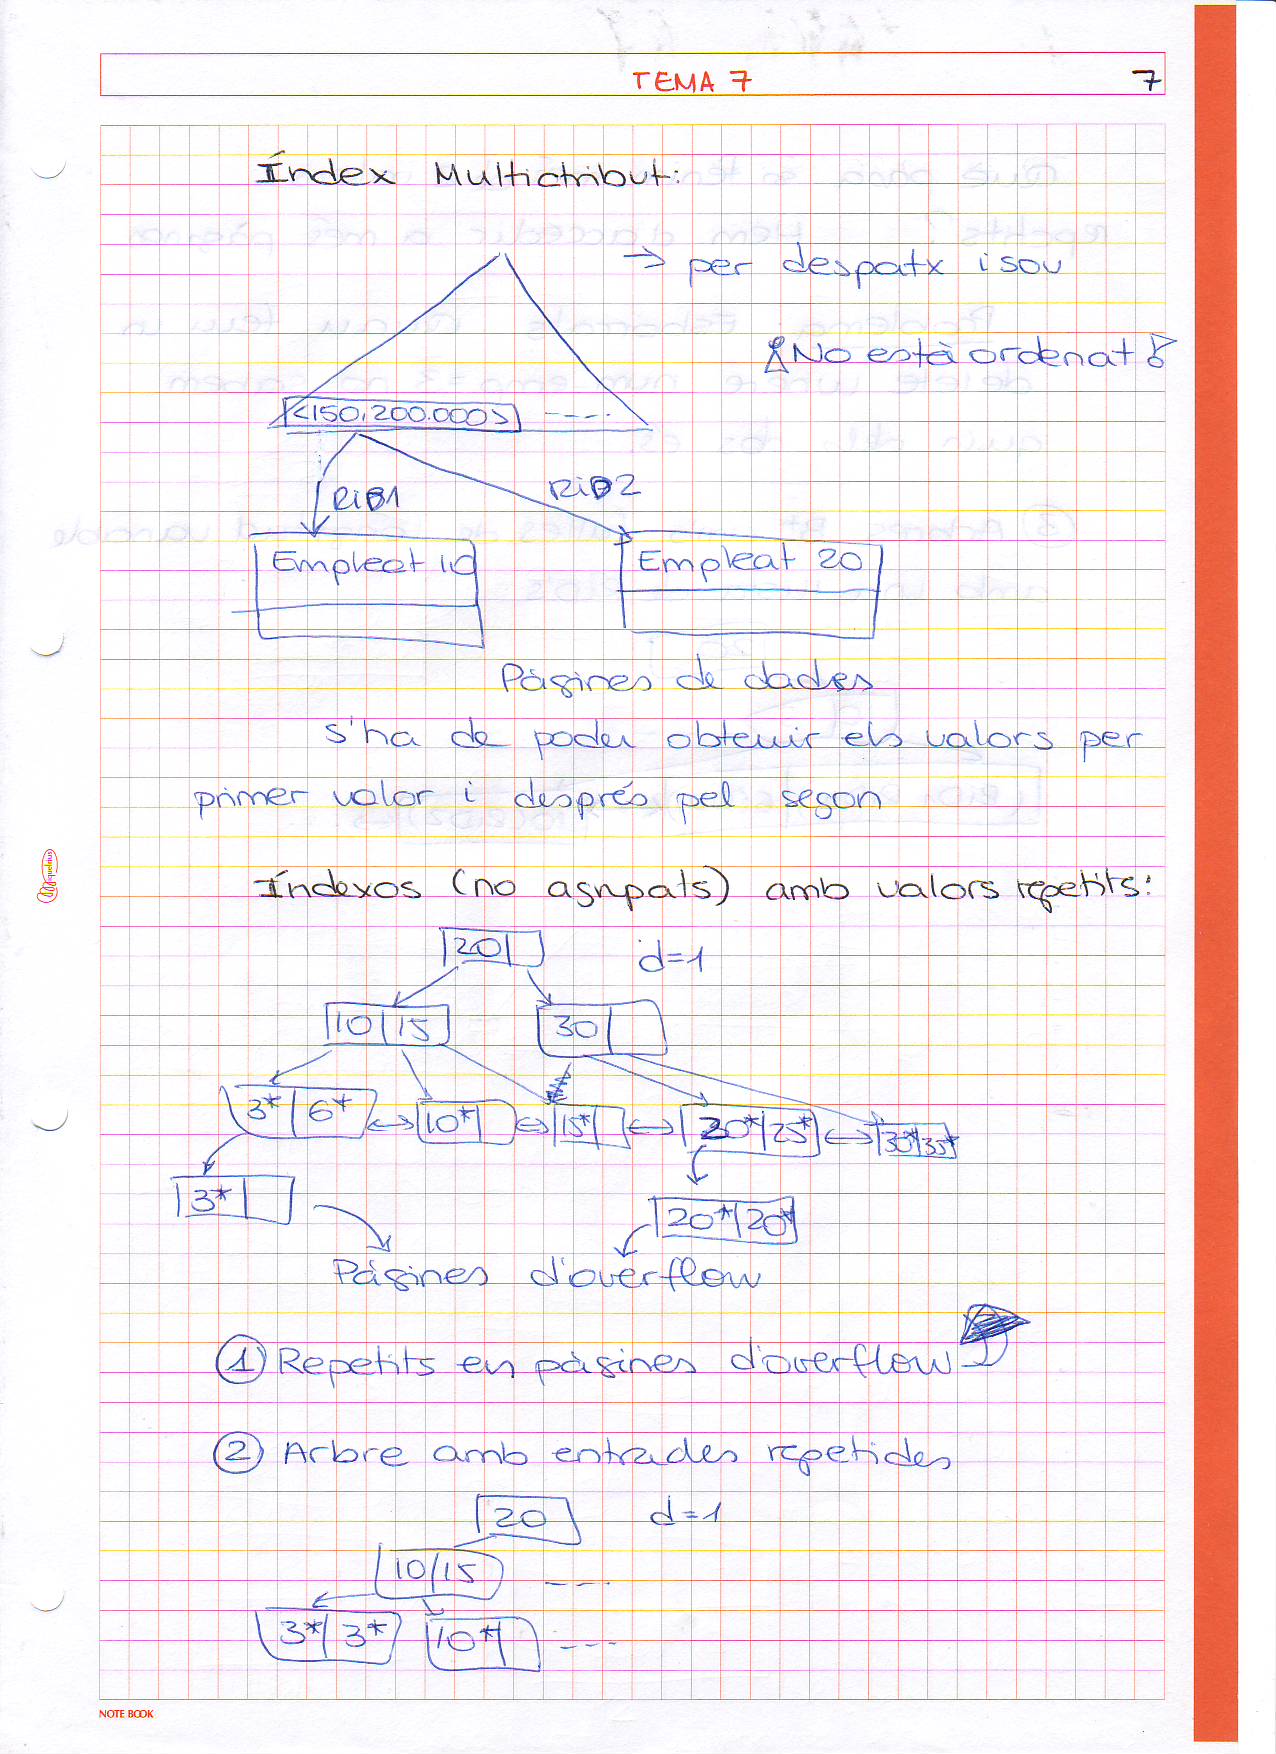 TEMA 7
7
Índex Multictribut:
→ per despatx i sou
¡No està ordenat!
<150,200.000> ----
RID1
RID2
Empleat 10
Empleat 20
Pàgines de dades
s'ha de poder obtenir els valors per
primer valor i després pel segon
Índexos (no agrupats) amb valors repetits:
20
d=1
10 | 15
30
3* | 6* ↔ 10* ↔ 15* ↔ 20* | 25* ↔ 30* | 35*
3*
20* | 20*
Pàgines d'overflow
1 Repetits en pàgines d'overflow
2 Arbre amb entrades repetides
20
d=1
10/15 ----
3* | 3*
10* ---
NOTE BOOK